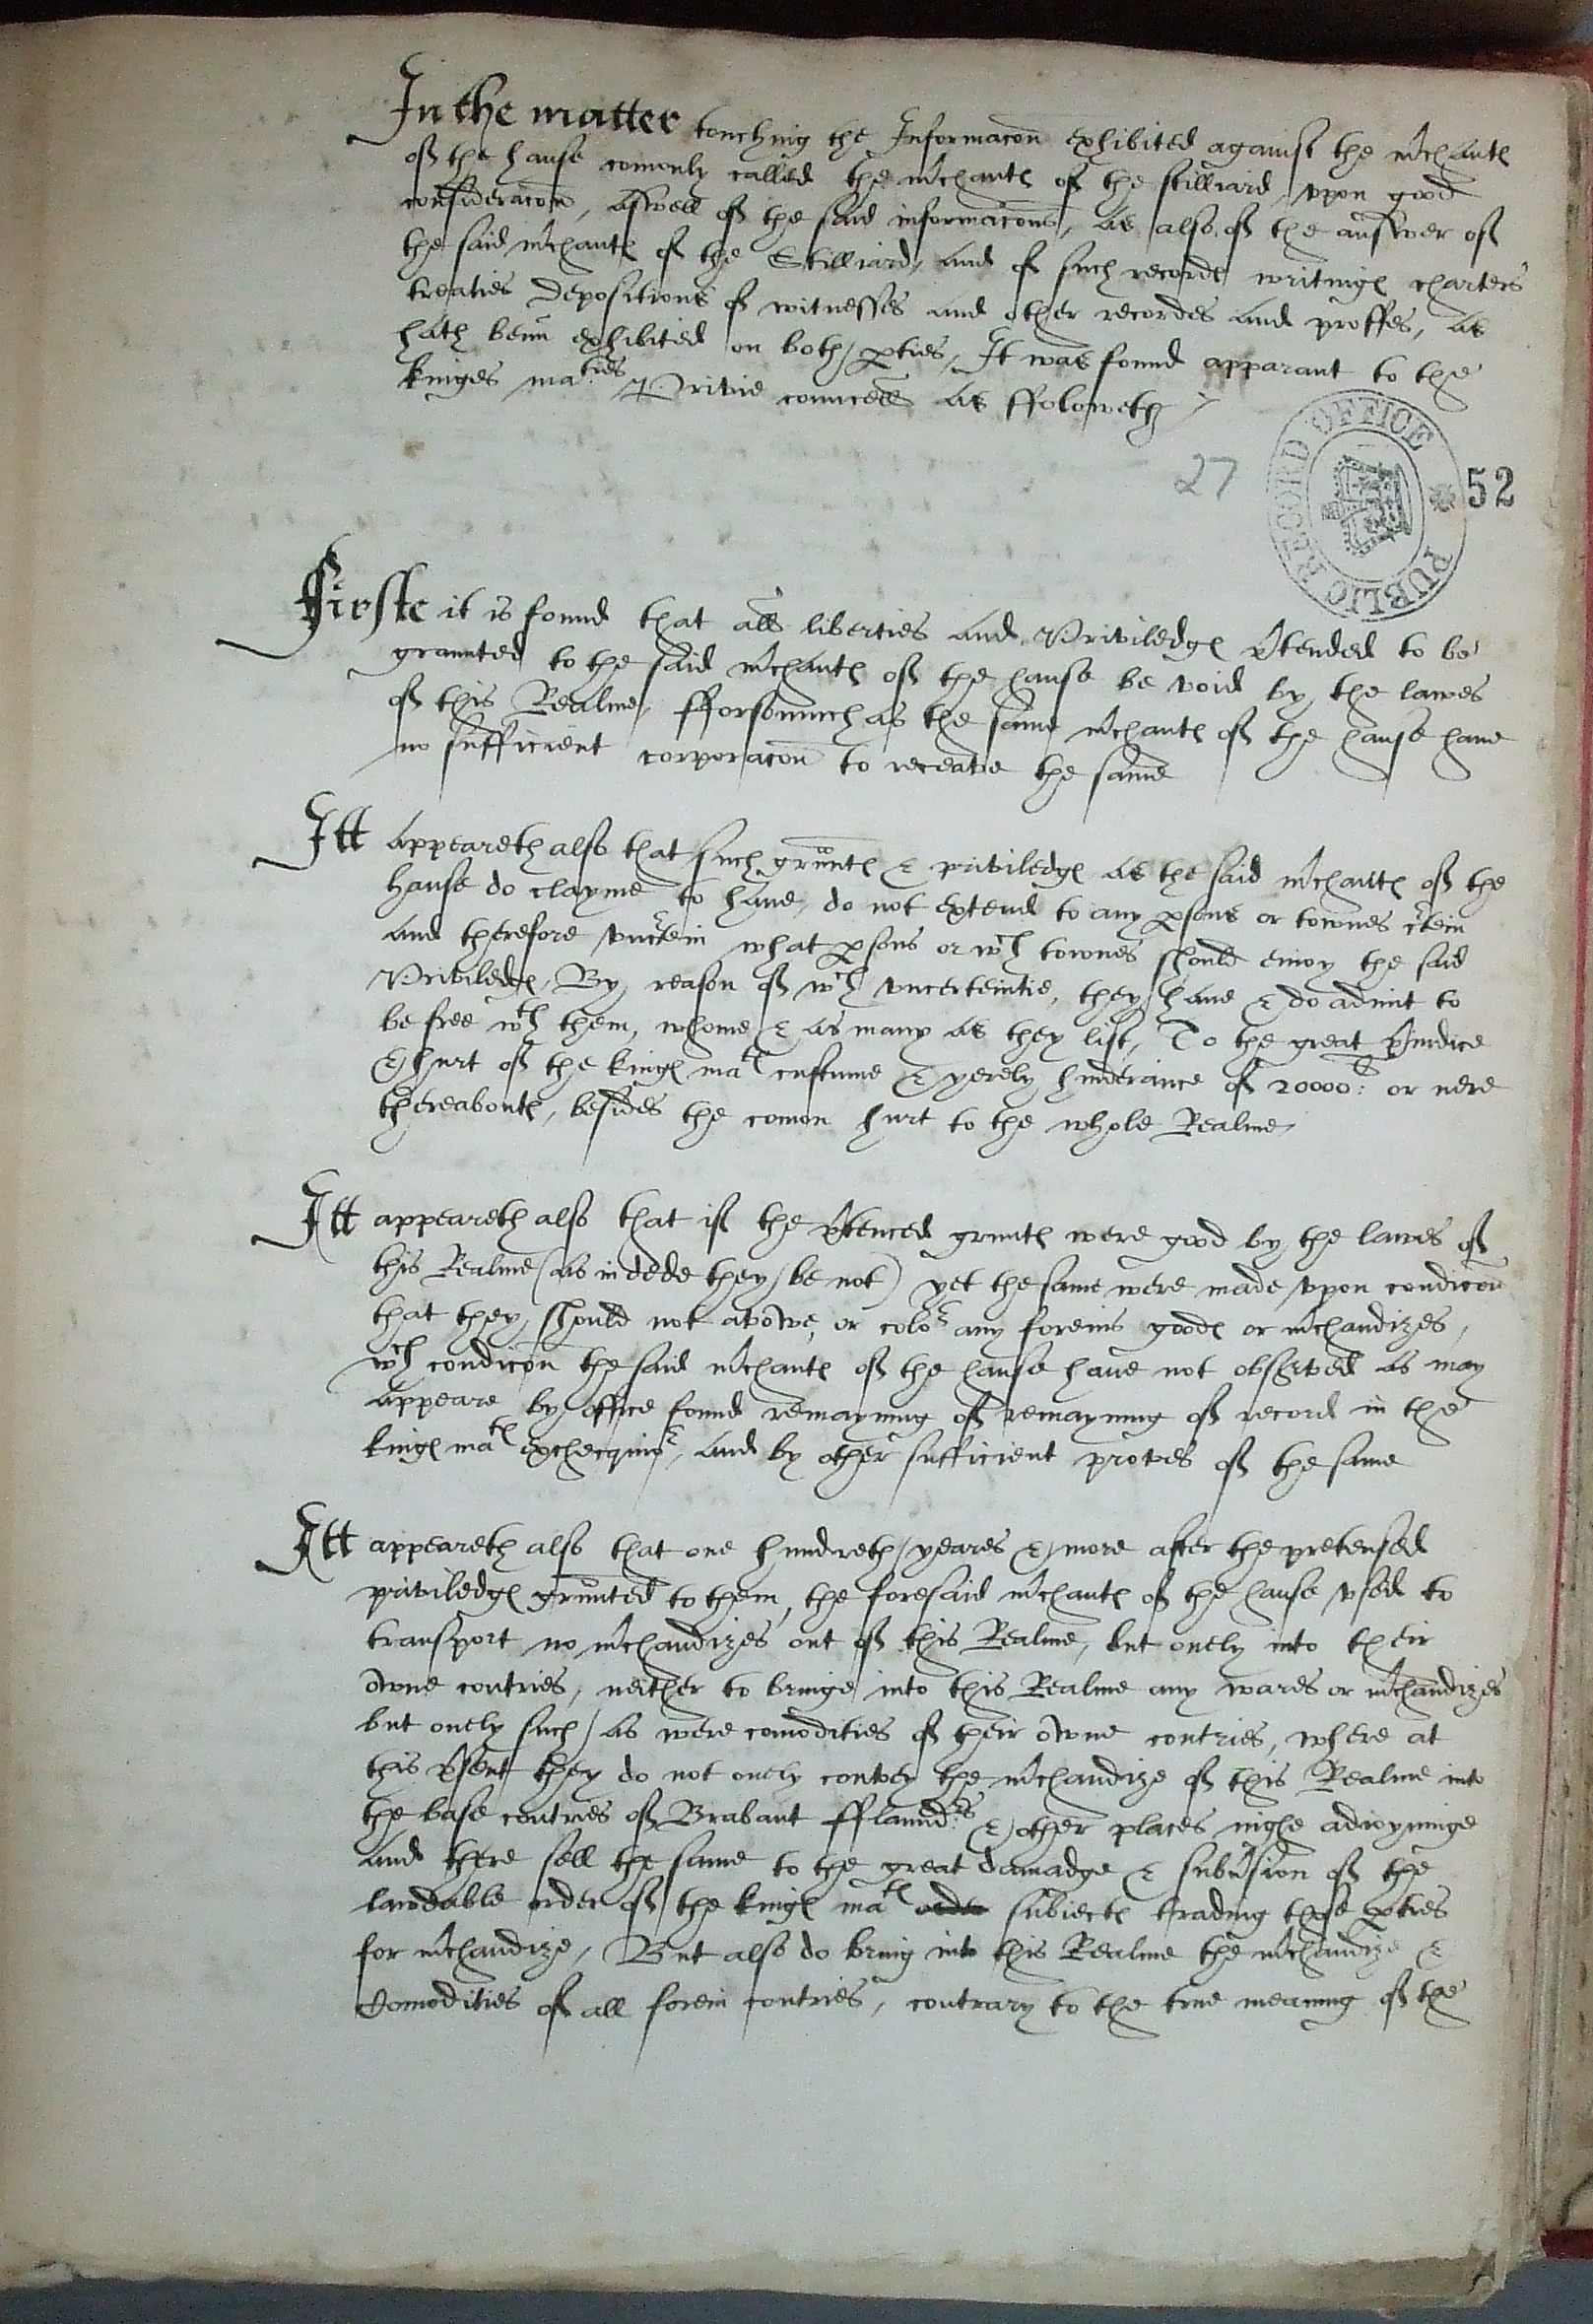 In the matter touching the Informacon exhibited against the mrchantes
of the hanse comonly called the mrchantes of the stilliard, vpon good
consideracon, aswell of the said informacons, as also of the answer of
the said mrchantes of the Stilliard, and of such recordes writinges charters
treaties depositions of witnesses and other recordes and proffes, as
hath bein exhibited on both pties, It was found apparant to the
kinges maties Privie councell as ffoloweth
27
PUBLIC RECORD OFFICE
52
Firste it is found that all liberties and Priviledges prtended to be
graunted to the said mrchantes of the hanse be void by the lawes
of this Realme, fforsomuch as the same mrchantes of the hanse haue
no sufficient corporacon to receave the same
Itt appeareth also that such grauntes & priviledges as the said mrchantes of the
hanse do clayme to haue, do not extend to any psons or townes crtein
and therefore vncrtein what psons or wch townes should enioy the said
Priviledges, By reason of wch vncerteintie, they haue & do admit to
be free wth them, whome & as many as they list, To the great priudice
& hurt of the kinges mates custume & yerely hinderance of 20000: li or nere
thereaboutes, besides the comon hurt to the whole Realme
Itt appeareth also that if the prtenced grauntes were good by the lawes of
this Realme (as in dede they be not) yet the same were made vpon condicon
that they should not avowe, or color any foreins goodes or mrchandizes,
wch condicon the said mrchantes of the hanse haue not observed as may
appeare by office found remayning of remayning of record in the
kinges mates exchequior, and by other sufficient proves of the same
Itt appeareth also that one hundreth yeares & more after the pretensed
priviledges graunted to them, the foresaid mrchantes of the hanse vsed to
transport no mrchandizes out of this Realme, but onely into their
owne contries, neither to bringe into this Realme any wares or mrchandizes
but onely such as were comodities of their owne contries, where at
this prsent they do not onely convey the mrchandize of this Realme into
the base contries of Brabant fflaundrs & other places nighe adioyninge
and there sell the same to the great damadge & subvrsion of the
lawdable order of the kinges mates order subiectes trading those pties
for mrchandize, But also do bring into this Realme the mrchandize &
Comodities of all forein contries, contrary to the true meaning of the